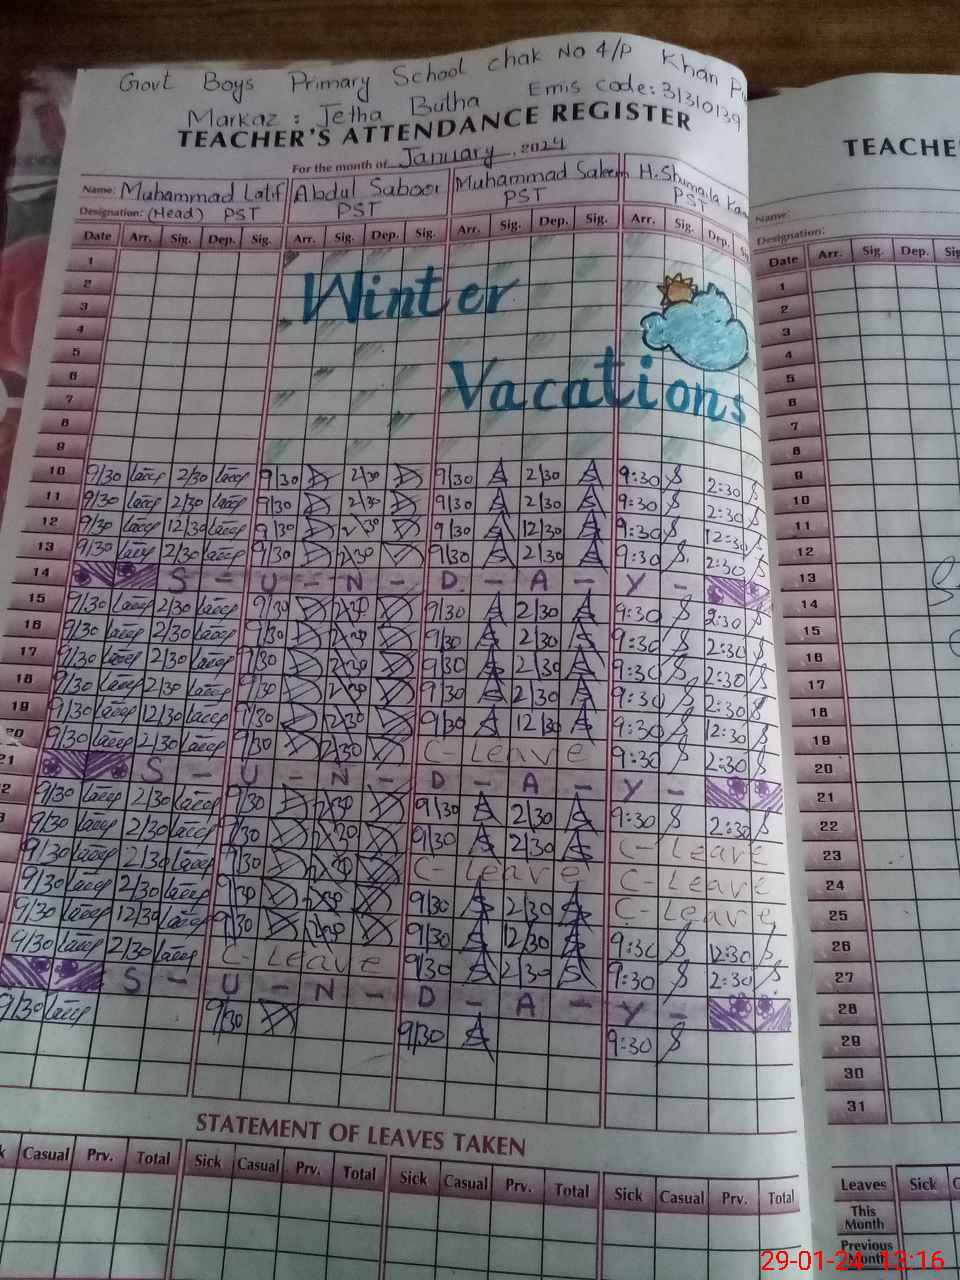 Govt Boys Primary School chak No 4/P Khan
Markaz: Jetha Butha Emis code: 31310139
TEACHER'S ATTENDANCE REGISTER
For the month of January, 2024
Name: Muhammad Latif Abdul Saboor Muhammad Saleem H. Shumaila
Designation: (Head) PST PST PST PST
Date Arr. Sig. Dep. Sig. Arr. Sig. Dep. Sig. Arr. Sig. Dep. Sig. Arr. Sig. Dep.
1
2
Winter
3
4
5
6
Vacations
7
8
9
10 9/30 2/30 9/30 2/30 9/30 2/30 9:30 2:30
11 9/30 2/30 9/30 2/30 9/30 2/30 9:30 2:30
12 9/30 12/30 9/30 2/30 9/30 12/30 9:30 12:30
13 9/30 2/30 9/30 2/30 9/30 2/30 9:30 2:30
14 S - U - N - D - A - Y -
15 9/30 2/30 9/30 2/30 9/30 2/30 9:30 2:30
16 9/30 2/30 9/30 2/30 9/30 2/30 9:30 2:30
17 9/30 2/30 9/30 2/30 9/30 2/30 9:30 2:30
18 9/30 2/30 9/30 2/30 9/30 2/30 9:30 2:30
19 9/30 12/30 9/30 12/30 9/30 12/30 9:30 12:30
20 9/30 2/30 9/30 2/30 C-Leave 9:30 2:30
21 S - U - N - D - A - Y -
9/30 2/30 9/30 2/30 9/30 2/30 9:30 2:30
9/30 2/30 9/30 2/30 9/30 2/30 C-Leave
9/30 2/30 9/30 2/30 C-Leave C-Leave
9/30 2/30 9/30 2/30 9/30 2/30 C-Leave
9/30 12/30 9/30 12/30 9/30 12/30 9:30 12:30
9/30 2/30 C-Leave 9/30 2/30 9:30 2:30
S - U - N - D - A - Y -
9/30 9/30 9/30 9:30
STATEMENT OF LEAVES TAKEN
Casual Prv. Total Sick Casual Prv. Total Sick Casual Prv. Total Sick Casual Prv. Total
TEACHE
Name:
Designation:
Date Arr. Sig. Dep. Sig
1
2
3
4
5
6
7
8
9
10
11
12
13
14
15
16
17
18
19
20
21
22
23
24
25
26
27
28
29
30
31
Leaves Sick
This Month
Previous Month
29-01-24 13:16